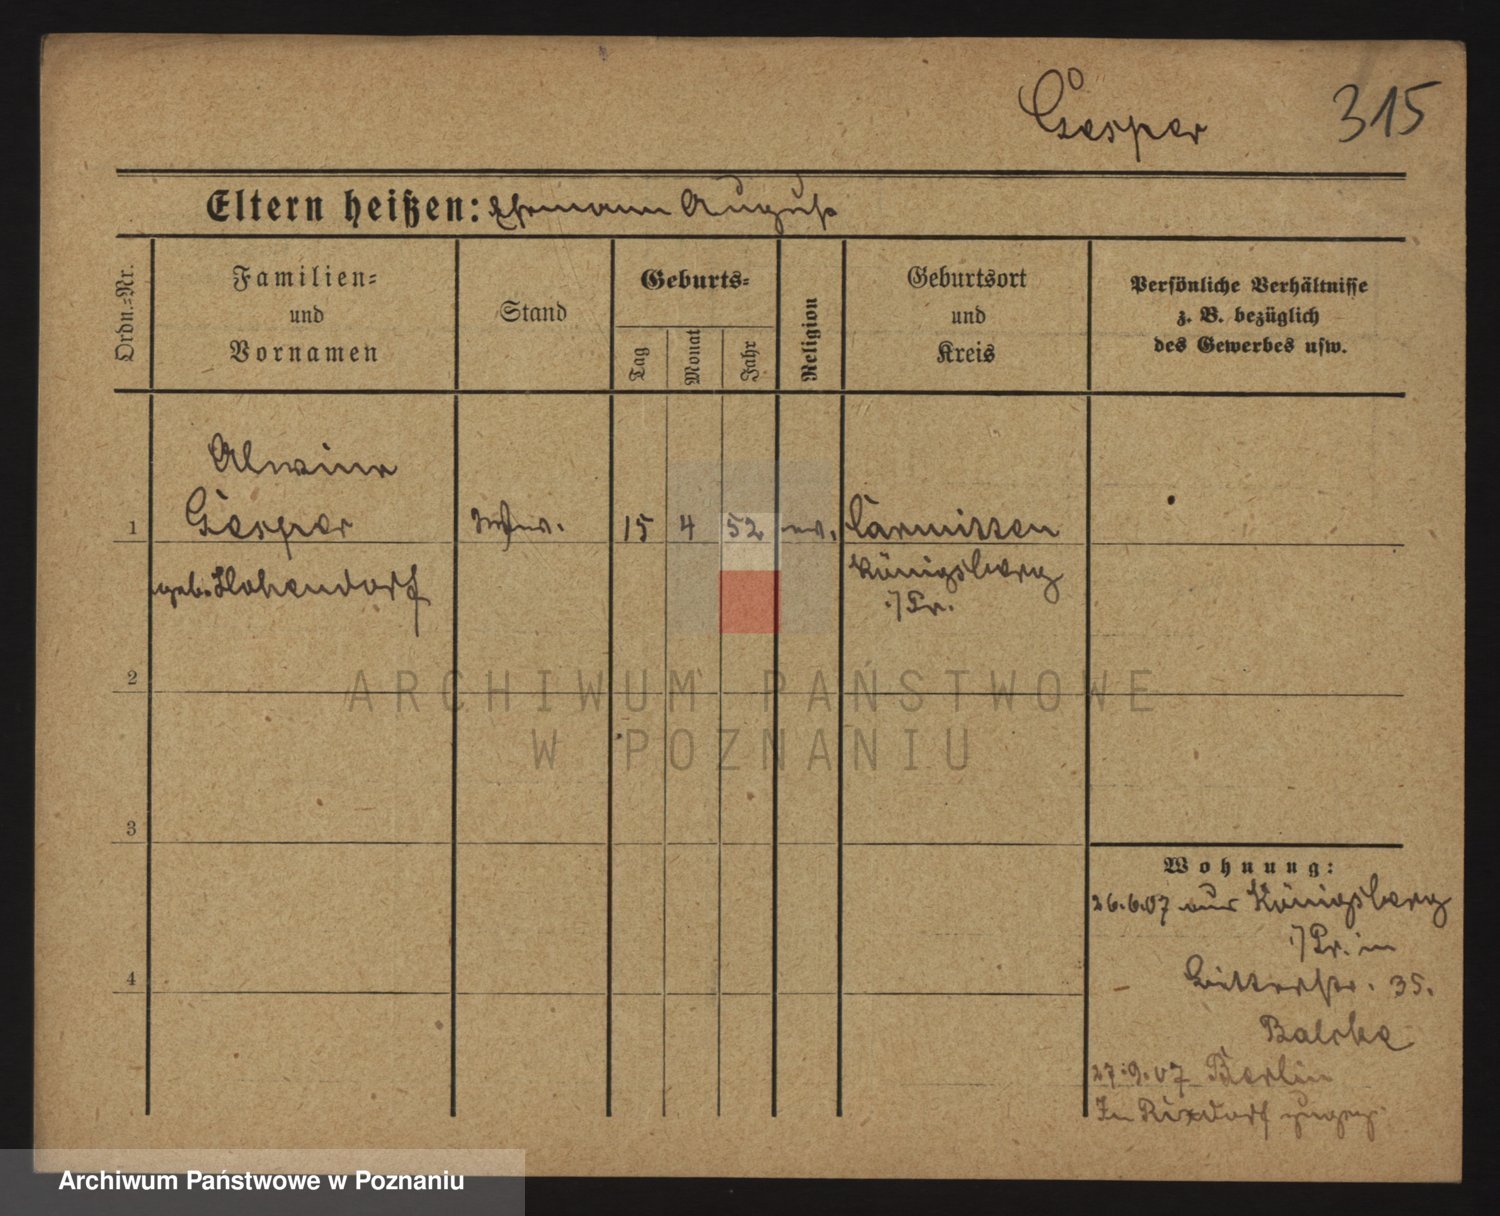 Gesper 315
Eltern heißen: Ehemann August
Ordn.-Nr.
Familien-
und
Vornamen
Stand
Geburts-
Tag
Monat
Jahr
Religion
Geburtsort
und
Kreis
Persönliche Verhältnisse
z. B. bezüglich
des Gewerbes usw.
Alwine
1 Gesper Wwe. 15 4 52 ev. Carmitten
geb. Hohendorf Königsberg
i/Pr.
2
ARCHIWUM PAŃSTWOWE
W POZNANIU
3
Wohnung:
26.6.07 aus Königsberg
i/Pr. in
Bitterstr. 35.
4
27.9.07 Berlin
In Rixdorf zugez.
Archiwum Państwowe w Poznaniu